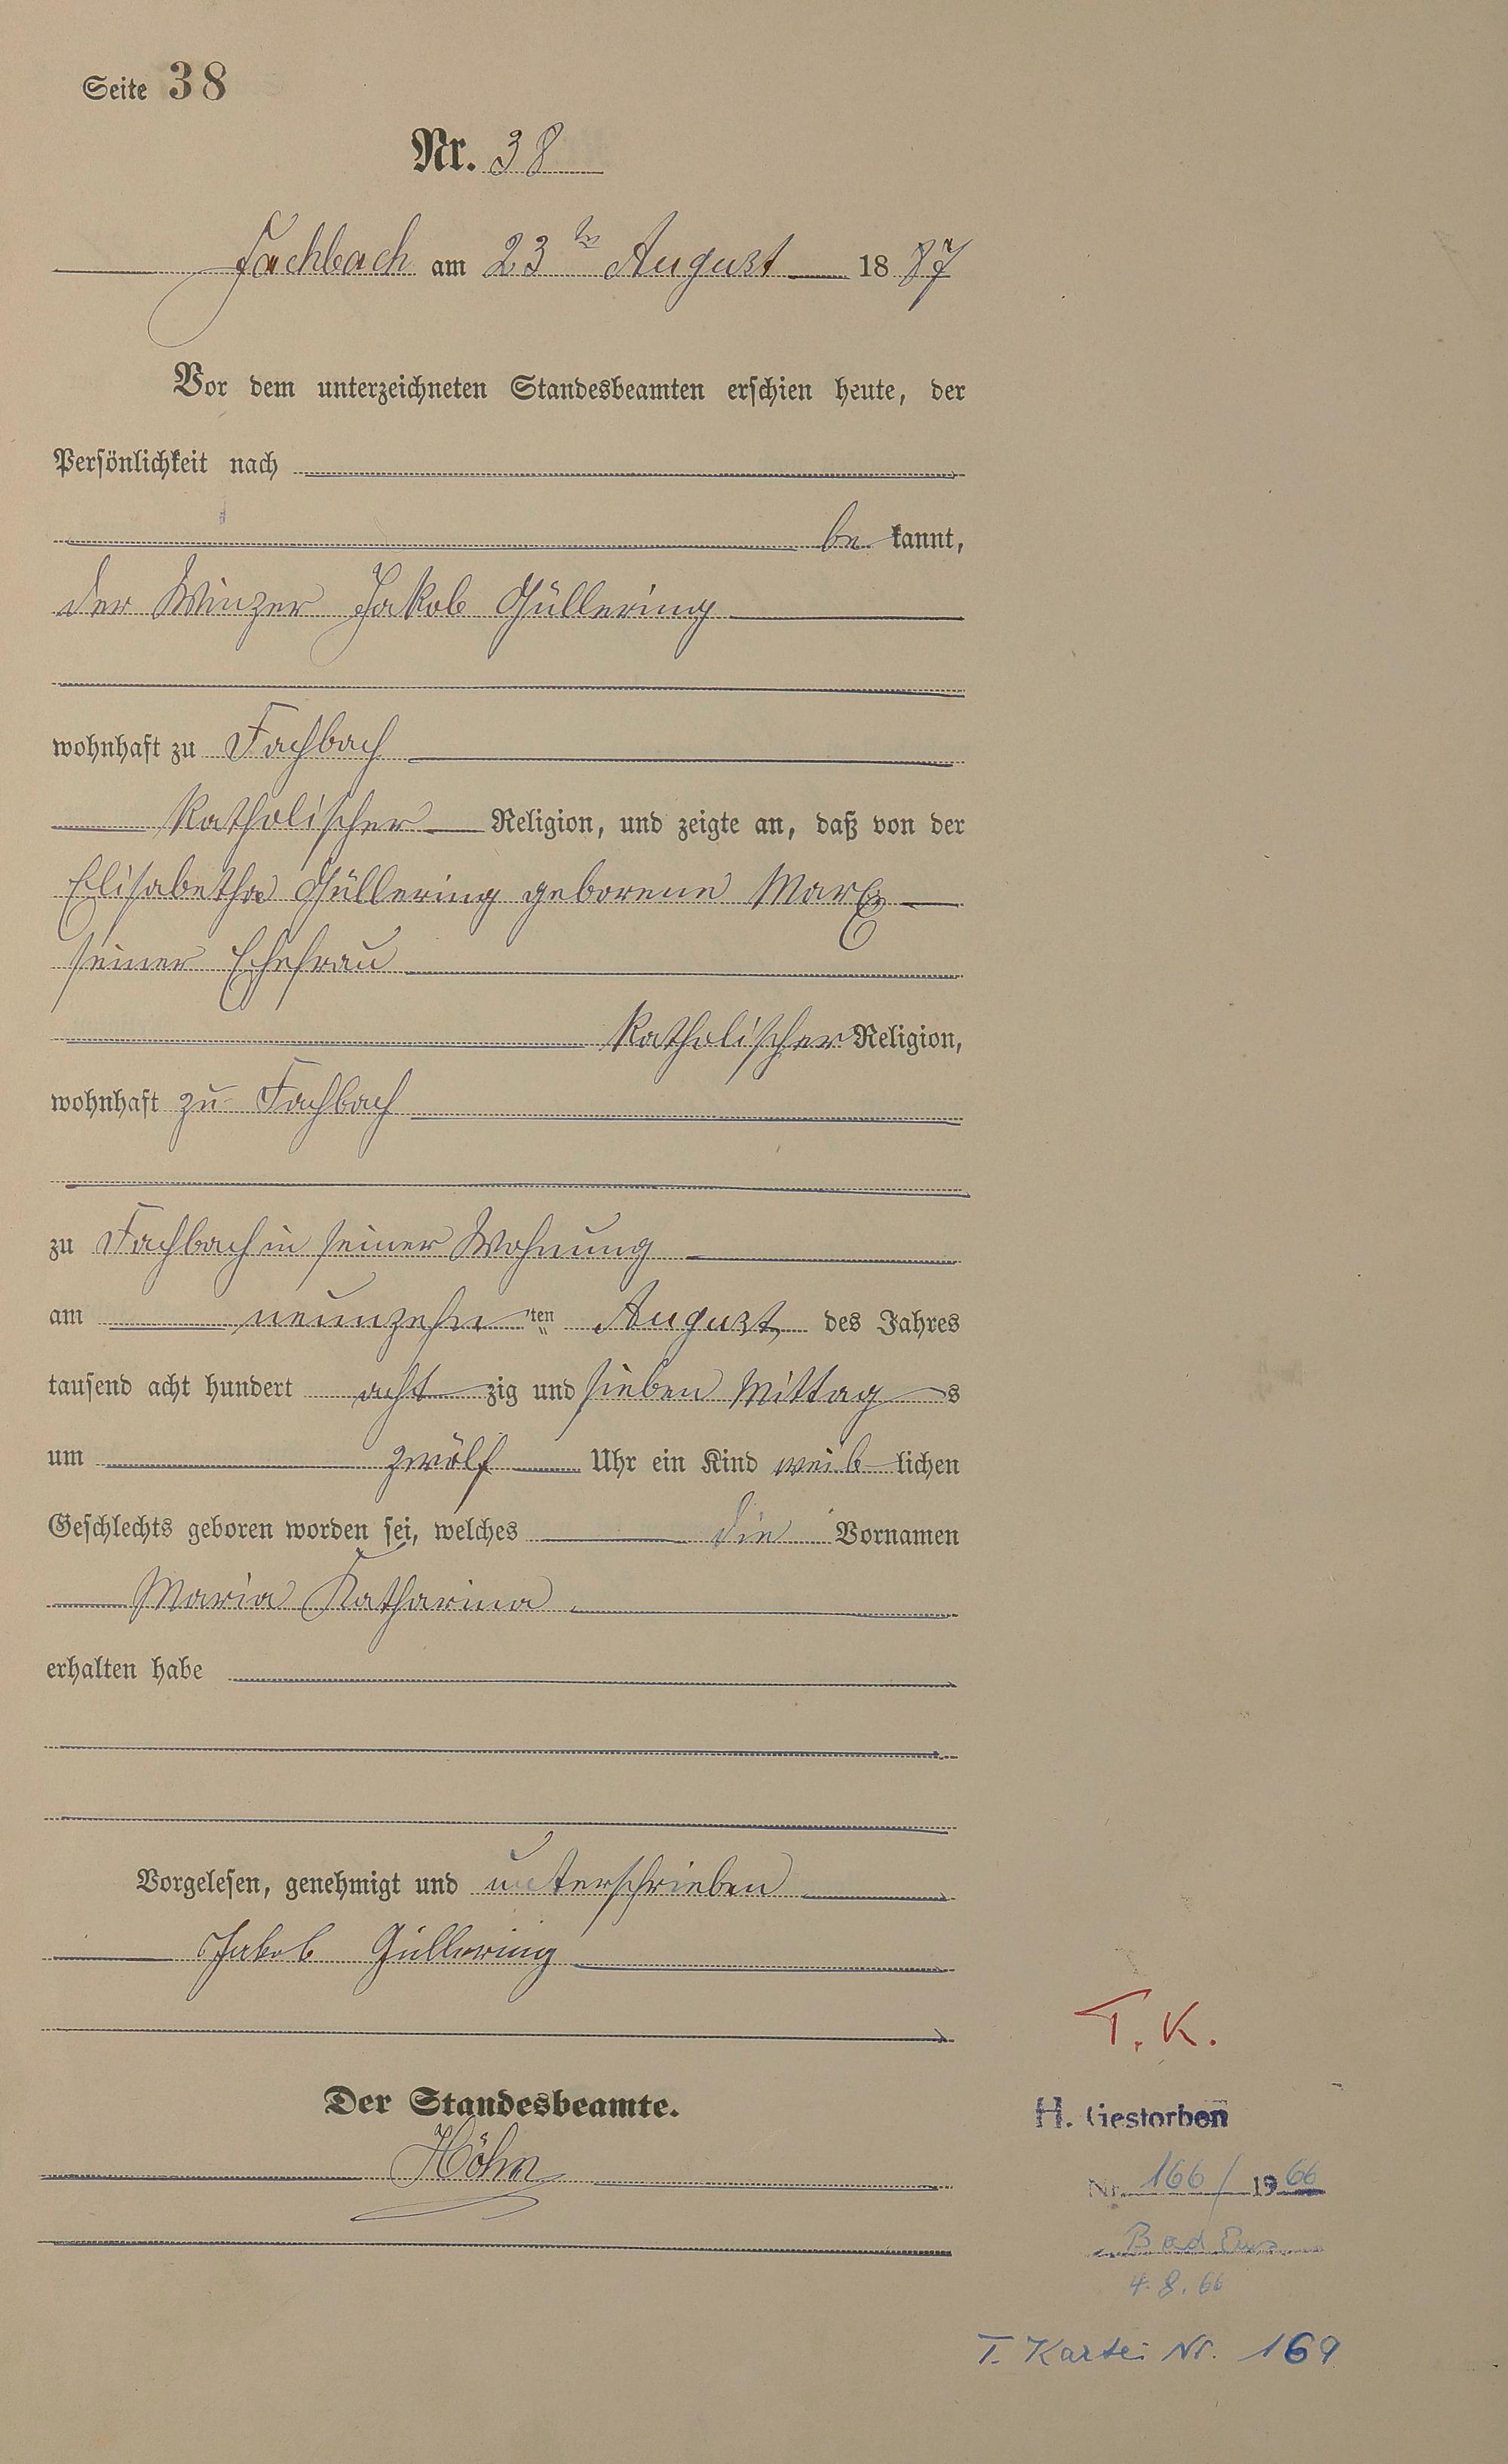 Seite 38
Nr. 38
Fachbach am 23ten August 1887
Vor dem unterzeichneten Standesbeamten erschien heute, der
Persönlichkeit nach
be kannt,
der Winzer Jakob Güllering
wohnhaft zu Fachbach
katholischer Religion, und zeigte an, daß von der
Elisabetha Güllering geborene Marx
seiner Ehefrau
katholischer Religion,
wohnhaft zu Fachbach
zu Fachbach in seiner Wohnung
am neunzehnten August des Jahres
tausend acht hundert acht zig und sieben Mittags
um zwölf Uhr ein Kind weiblichen
Geschlechts geboren worden sei, welches die Vornamen
Maria Katharina
erhalten habe
Vorgelesen, genehmigt und unterschrieben
Jakob Güllering
Der Standesbeamte.
Höhn
T. K.
H. Gestorben
Nr. 166/1966
Bad Ems
4. 8. 66
T. Kartei Nr. 169